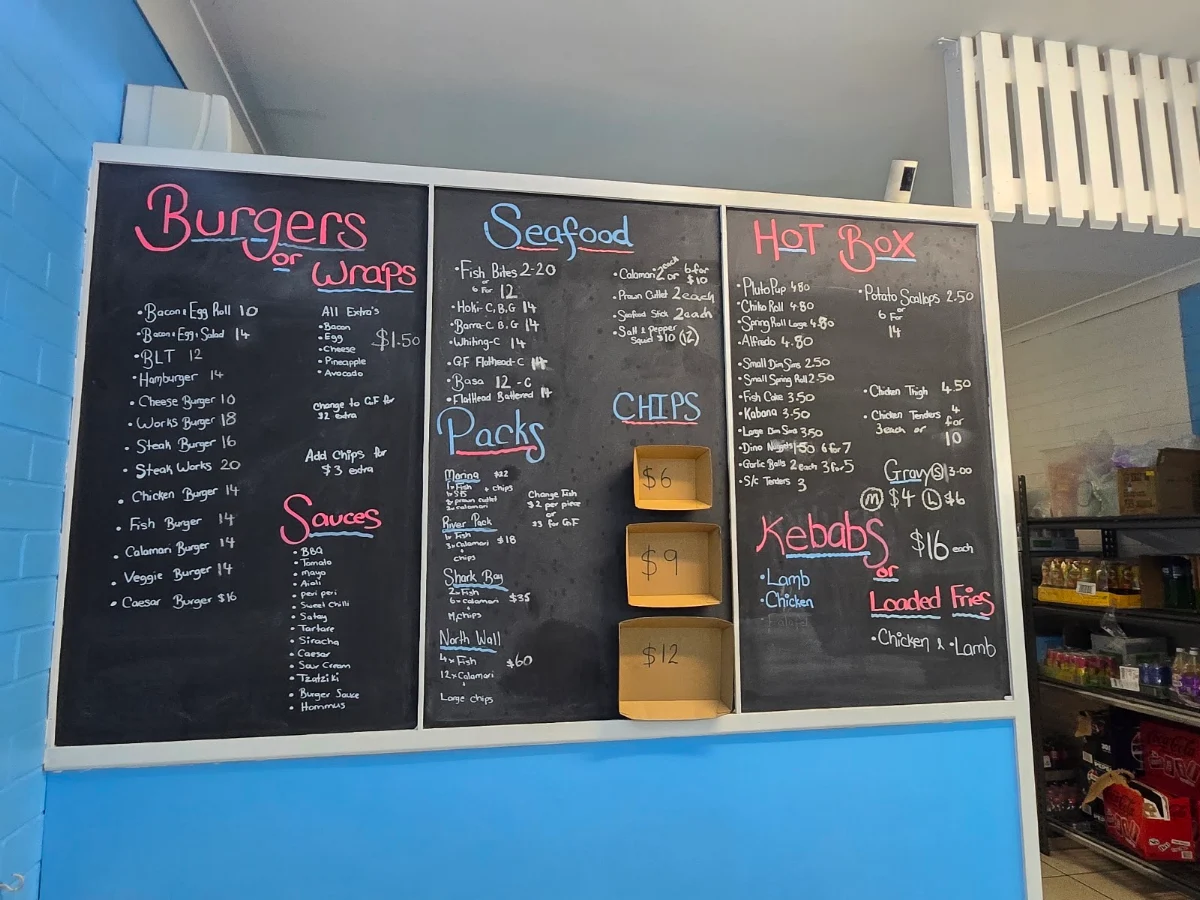 Burgers
or
Wraps
• Bacon & Egg Roll 10
• Bacon & Egg & Salad 14
• BLT 12
• Hamburger 14
• Cheese Burger 10
• Works Burger 18
• Steak Burger 16
• Steak Works 20
• Chicken Burger 14
• Fish Burger 14
• Calamari Burger 14
• Veggie Burger 14
• Caesar Burger $16
All Extra's
• Bacon
• Egg
• Cheese
• Pineapple
• Avocado
$1.50
Change to G.F for
$2 extra
Add Chips for
$3 extra
Sauces
• BBQ
• Tomato
• Mayo
• Aioli
• Peri peri
• Sweet Chilli
• Satay
• Tartare
• Siracha
• Caesar
• Sour Cream
• Tzatziki
• Burger Sauce
• Hommus
Seafood
• Fish Bites 2-20
or
6 For 12
• Hoki - C, B, G 14
• Barra - C, B, G 14
• Whiting - C 14
• G.F Flathead - C 14
• Basa 12 - C
• Flathead Battered 14
• Calamari 2 each or 6 for $10
• Prawn Cutlet 2 each
• Seafood Stick 2 each
• Salt & Pepper
Squid $10 (12)
Packs
Marina $22
1x Fish + chips
prawn cutlet
calamari
River Pack
1x Fish
3x Calamari $18
chips
Shark Bay
2x Fish
6x calamari $35
M chips
North Wall
4x Fish $60
12x Calamari
Large chips
Change Fish
$2 per piece
or
$3 for G.F
CHIPS
$6
$9
$12
HOT BOX
• Pluto Pup 4.80
• Chiko Roll 4.80
• Spring Roll Large 4.80
• Alfredo 4.80
• Small Dim Sims 2.50
• Small Spring Roll 2.50
• Fish Cake 3.50
• Kabana 3.50
• Large Dim Sims 3.50
• Dino Nuggets 1.50 6 for 7
• Garlic Balls 2 each 3 for 5
• S/C Tenders 3
• Potato Scallops 2.50
or
6 For
14
• Chicken Thigh 4.50
• Chicken Tenders
3 each or 4 for 10
Gravy (S) 3.00
(M) $4 (L) $6
Kebabs $16 each
or
• Lamb
• Chicken
Loaded Fries
• Chicken & • Lamb